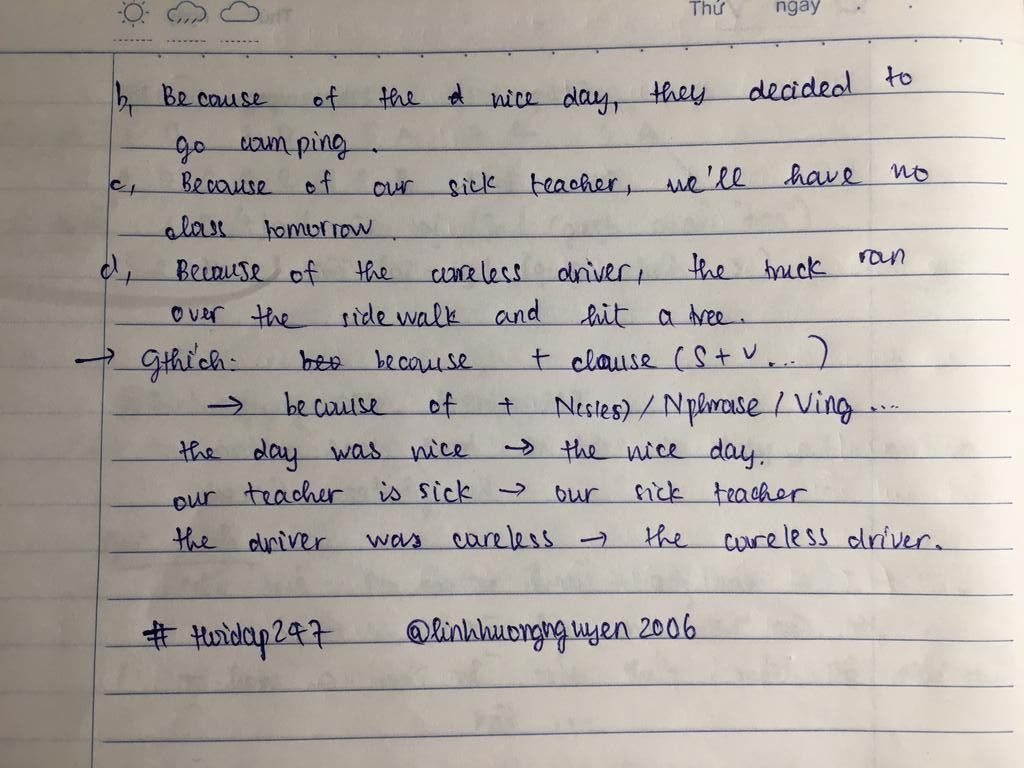 Thứ ngày
b, Because of the nice day, they decided to
go camping.
c, Because of our sick teacher, we'll have no
class tomorrow.
d, Because of the careless driver, the truck ran
over the sidewalk and hit a tree.
→ Gthích: because + clause (S + V...)
→ because of + N(s/es) / Nphrase / Ving ....
the day was nice → the nice day.
our teacher is sick → our sick teacher
the driver was careless → the careless driver.
# hoidap247 @linhhuongnguyen2006